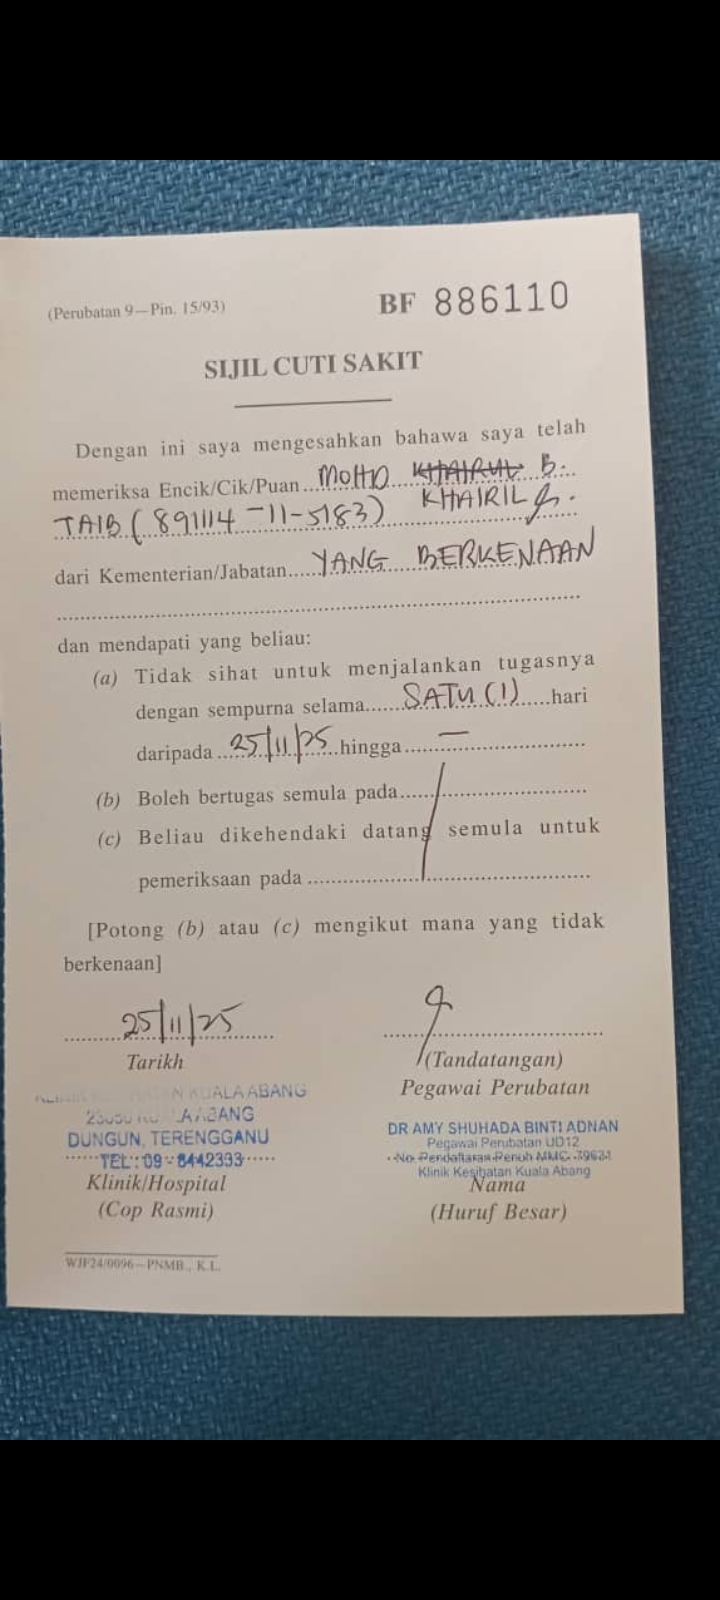 (Perubatan 9—Pin. 15/93)
BF 886110
SIJIL CUTI SAKIT
Dengan ini saya mengesahkan bahawa saya telah
memeriksa Encik/Cik/Puan MOHD KHAIRUL B.
TAIB (891114-11-5183) KHAIRIL
dari Kementerian/Jabatan YANG BERKENAAN
dan mendapati yang beliau:
(a) Tidak sihat untuk menjalankan tugasnya
dengan sempurna selama SATU (1) hari
daripada 25/11/25 hingga —
(b) Boleh bertugas semula pada
(c) Beliau dikehendaki datang semula untuk
pemeriksaan pada
[Potong (b) atau (c) mengikut mana yang tidak
berkenaan]
25/11/25
Tarikh
(Tandatangan)
Pegawai Perubatan
KUALA ABANG
DUNGUN, TERENGGANU
TEL : 09 - 8442393
Klinik/Hospital
(Cop Rasmi)
DR AMY SHUHADA BINTI ADNAN
Pegawai Perubatan UD12
No. Pendaftaran Penuh MMC
Klinik Kesihatan Kuala Abang
Nama
(Huruf Besar)
WJF24/0096—PNMB., K.L.